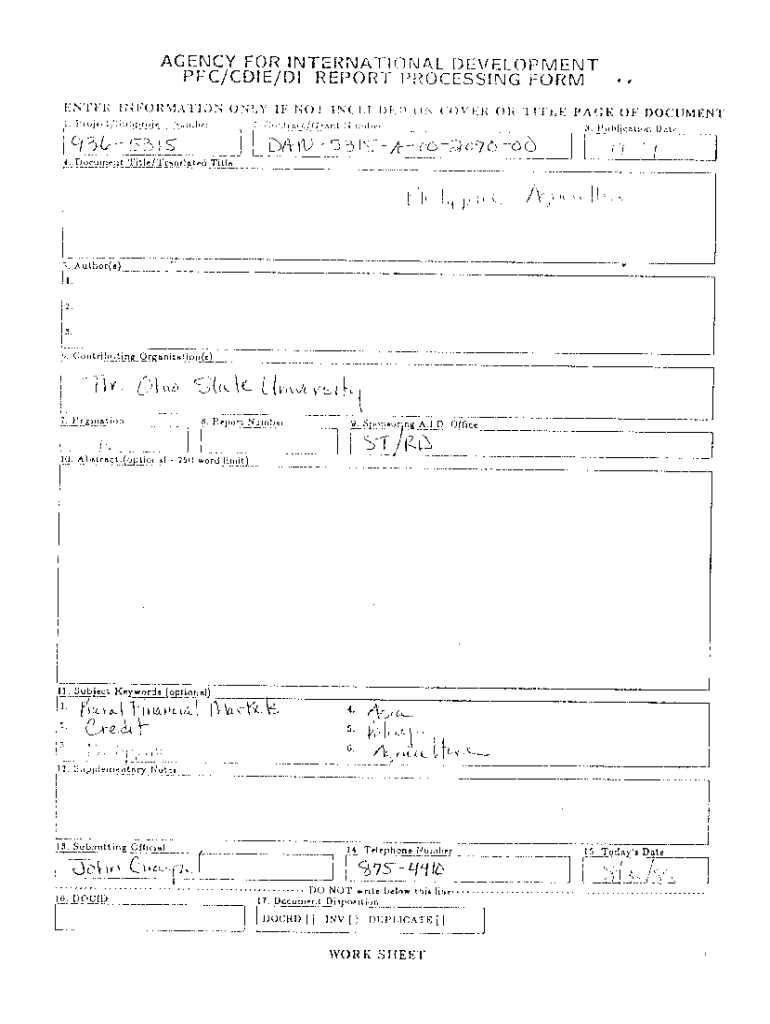 AGENCY FOR INTERNATIONAL DEVELOPMENT
PFC/CDIE/DI REPORT PROCESSING FORM
ENTER INFORMATION ONLY IF NOT INCLUDED ON COVER OR TITLE PAGE OF DOCUMENT
1. Project/Subproject Number 2. Contract/Grant Number 3. Publication Date
936-5315 DAN-5315-A-00-2070-00
4. Document Title/Translated Title
5. Author(s)
1.
2.
3.
6. Contributing Organization(s)
The Ohio State University
7. Pagination 8. Report Number 9. Sponsoring A.I.D. Office
ST/RD
10. Abstract (optional - 250 word limit)
11. Subject Keywords (optional)
1. Rural Financial Markets 4. Asia
2. Credit 5.
3. 6. Agriculture
12. Supplementary Notes
13. Submitting Official 14. Telephone Number 15. Today's Date
John
DO NOT write below this line
16. DOCID 17. Document Disposition
DOCRD [] INV [] DUPLICATE []
WORK SHEET